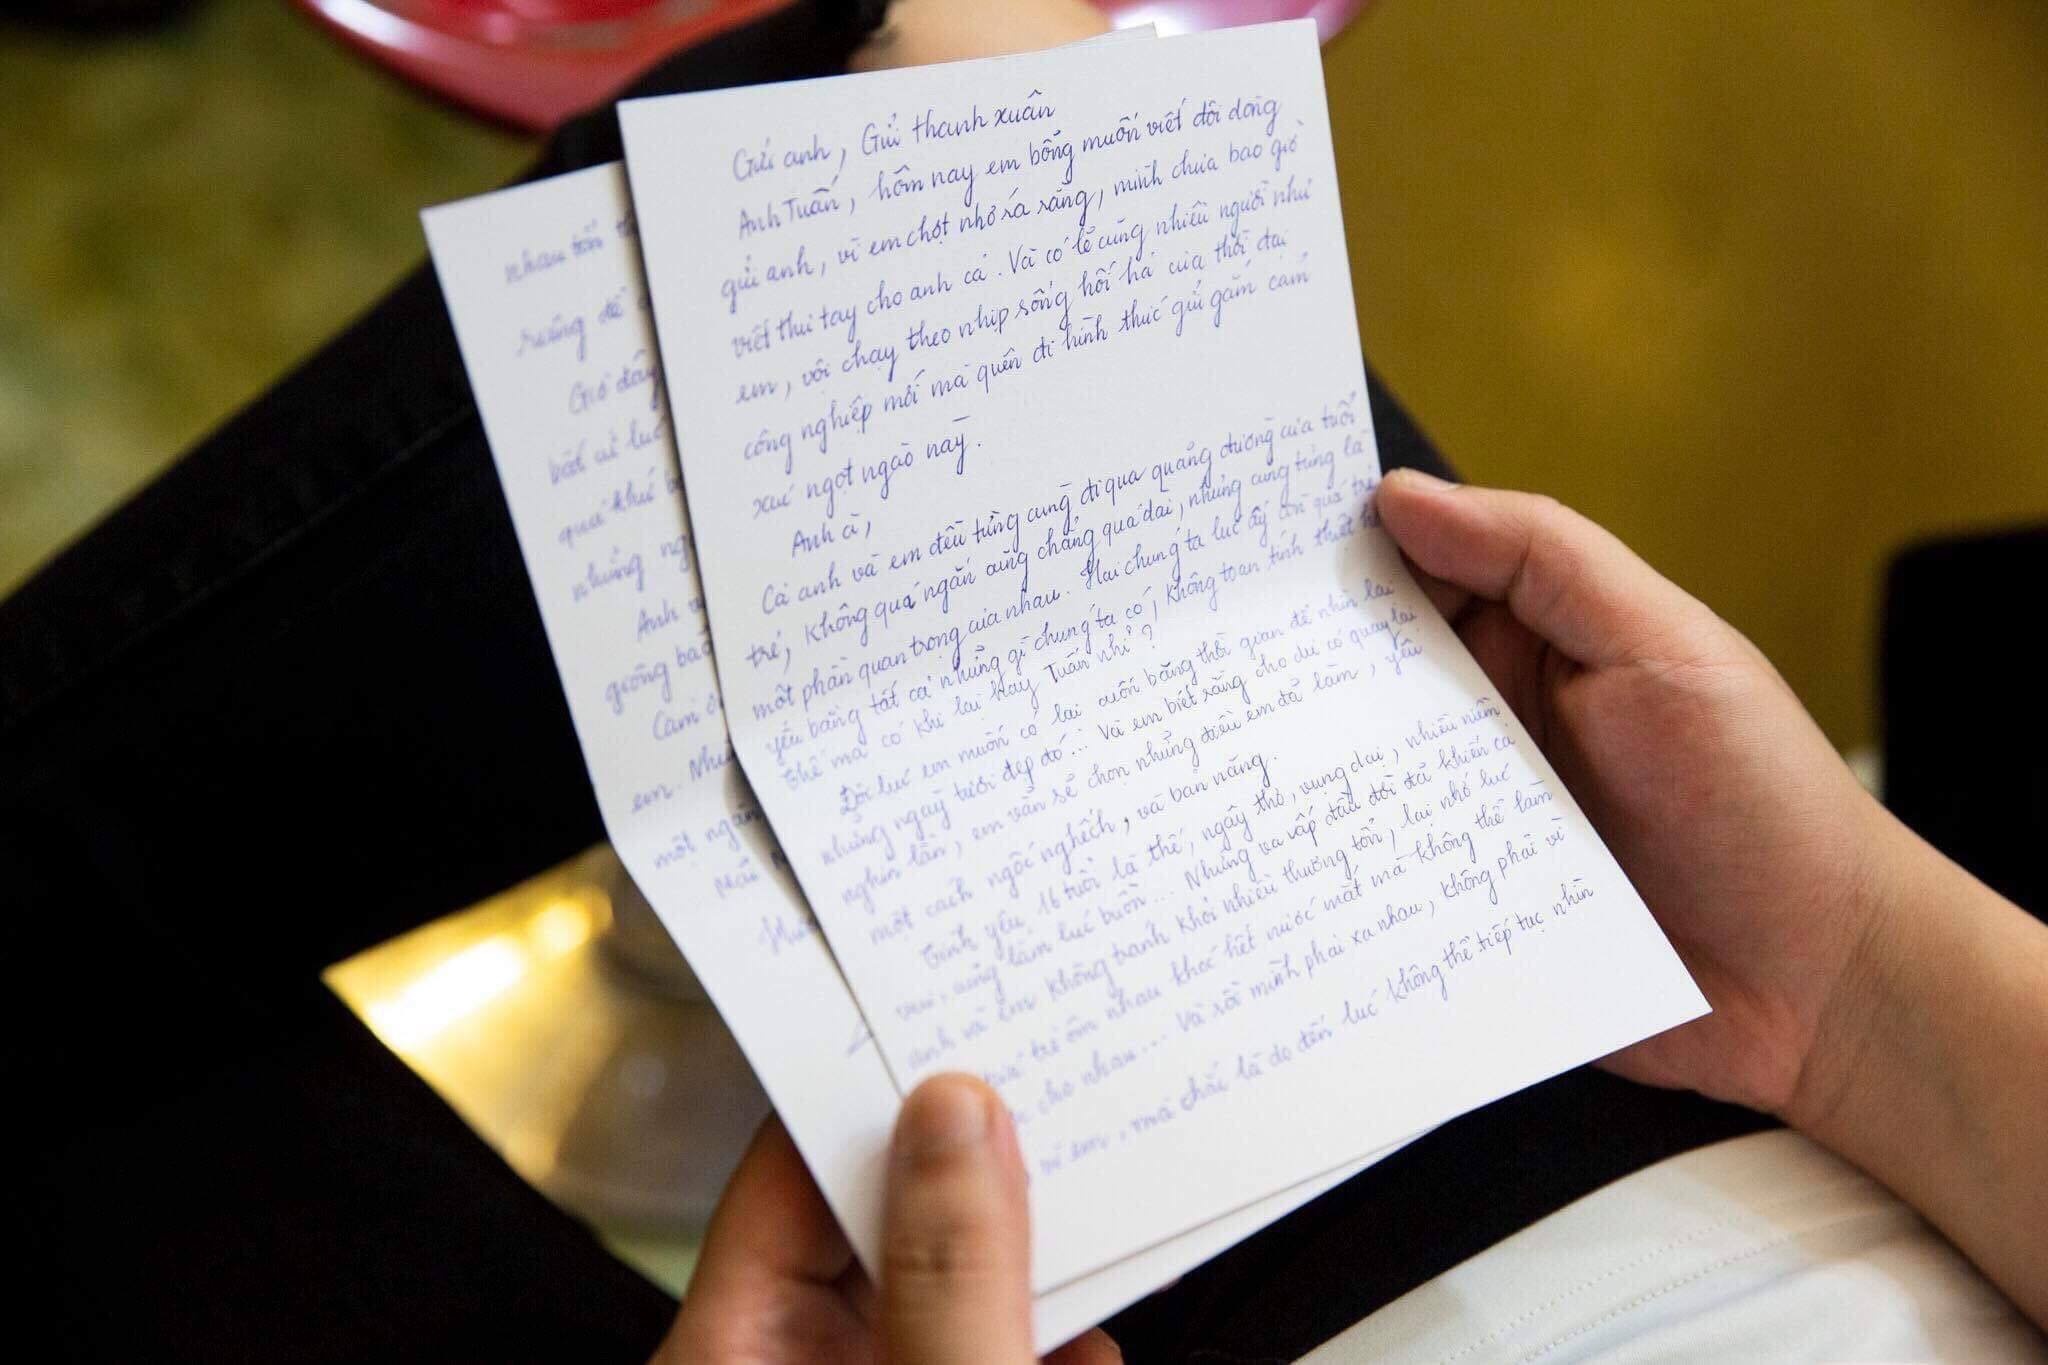 Gửi anh, Gửi thanh xuân
Anh Tuấn, hôm nay em bỗng muốn viết đôi dòng
gửi anh, vì em chợt nhớ ra rằng, mình chưa bao giờ
viết thư tay cho anh cả. Và có lẽ cũng nhiều người như
em, vội chạy theo nhịp sống hối hả của thời đại
công nghiệp mới mà quên đi hình thức gửi gắm cảm
xúc ngọt ngào này.
Anh à,
Cả anh và em đều từng cùng đi qua quãng đường của tuổi
trẻ, không quá ngắn cũng chẳng quá dài, nhưng cũng từng là
một phần quan trọng của nhau. Hai chúng ta lúc ấy còn quá trẻ,
yêu bằng tất cả những gì chúng ta có, không toan tính thiệt
thế mà có khi lại hay Tuấn nhỉ?
Đôi lúc em muốn có lại cuốn băng thời gian để nhìn lại
những ngày tươi đẹp đó... Và em biết rằng cho dù có quay lại
nghìn lần, em vẫn sẽ chọn những điều em đã làm, yêu
một cách ngốc nghếch, và bản năng.
Tình yêu 16 tuổi là thế, ngây thơ, vụng dại, nhiều niềm
vui, cũng lắm lúc buồn... Nhưng va vấp đầu đời đã khiến cả
anh và em không tránh khỏi nhiều thương tổn, lại nhớ lúc
trẻ ôm nhau khóc hết nước mắt mà không thể làm
cho nhau... Và rồi mình phải xa nhau, không phải vì
vì em, mà chắc là do đến lúc không thể tiếp tục nhìn
nhau
Giờ đây
bất cứ lúc
quá khứ
những
Anh
giông bão
Cảm ơn
em.
một ngàn